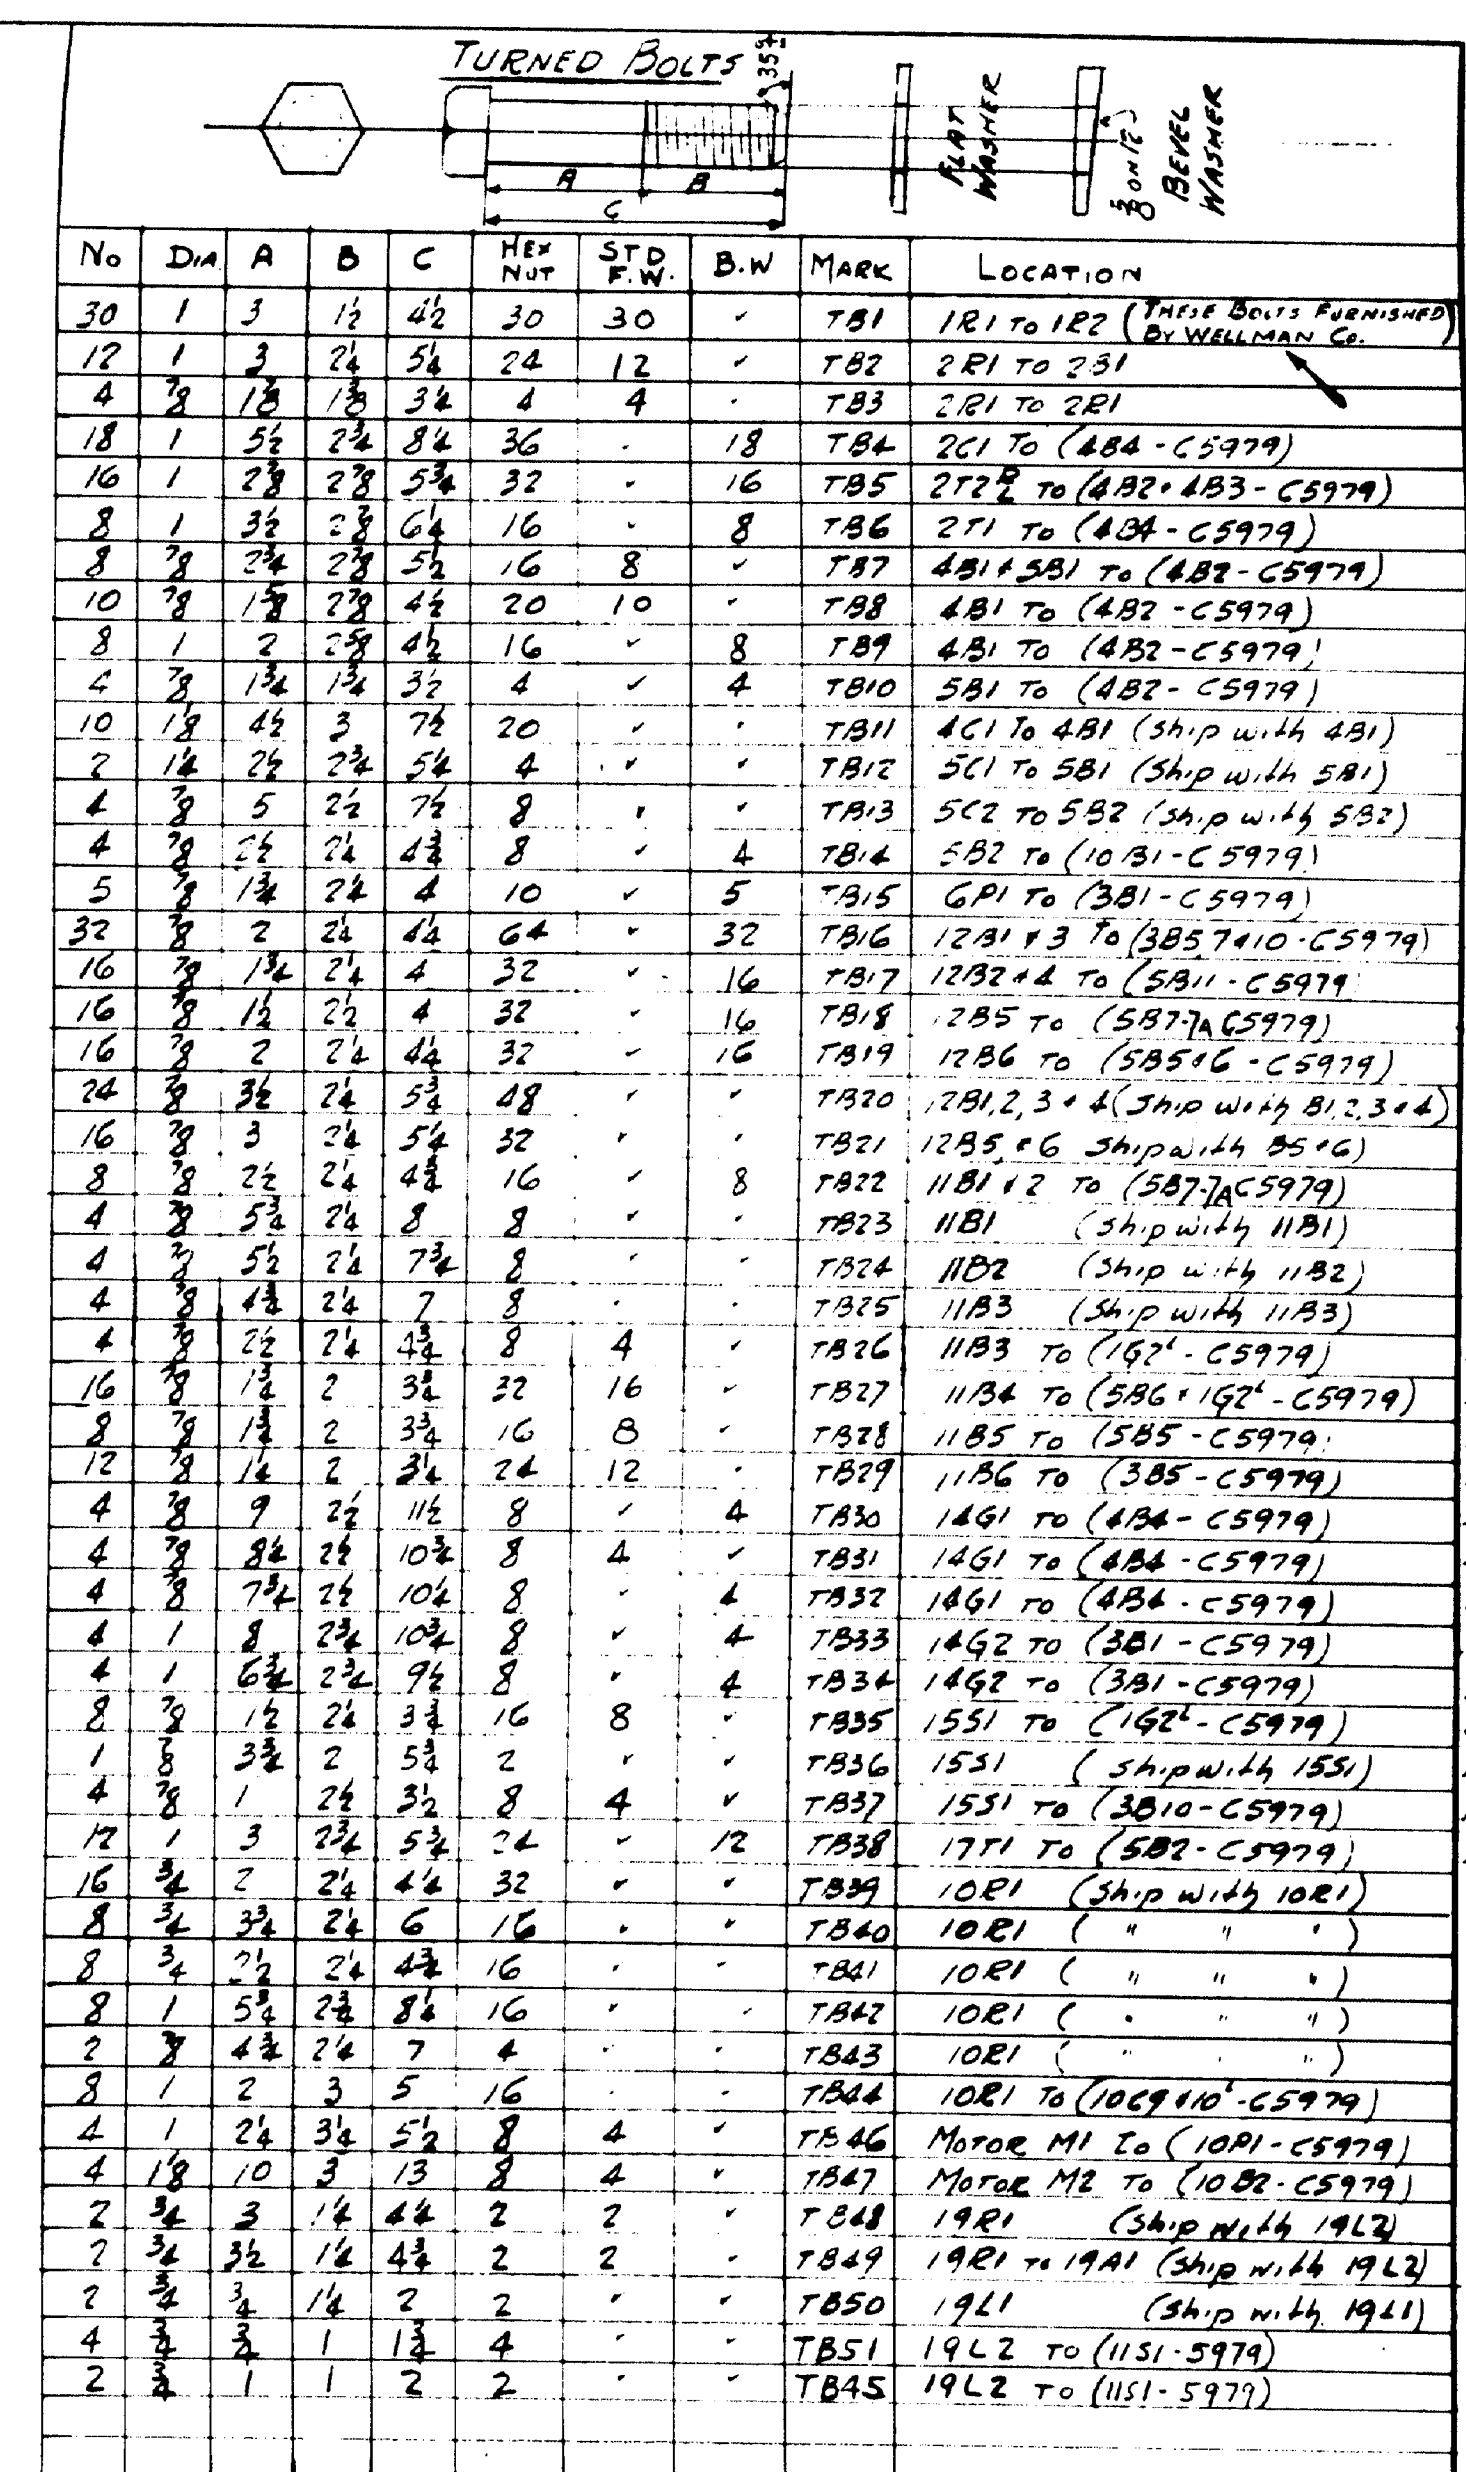 TURNED BOLTS
35°±
A B
C
FLAT WASHER
ON 12
BEVEL WASHER
No DIA A B C HEX NUT STD F.W. B.W MARK LOCATION
30 1 3 1½ 4½ 30 30 ✓ TB1 1R1 TO 1R2 (THESE BOLTS FURNISHED BY WELLMAN CO.)
12 1 3 2¼ 5¼ 24 12 ✓ TB2 2R1 TO 2B1
4 ⅞ 1⅞ 1⅜ 3¼ 4 4 TB3 2R1 TO 2R1
18 1 5½ 2¾ 8¼ 36 18 TB4 2C1 TO (4B4 - C5979)
16 1 2⅞ 2⅞ 5¾ 32 ✓ 16 TB5 2T2 R L TO (4B2 & 4B3 - C5979)
8 1 3½ 2⅞ 6¼ 16 ✓ 8 TB6 2T1 TO (4B4 - C5979)
8 ⅞ 2¾ 2⅞ 5½ 16 8 ✓ TB7 4B1 & 5B1 TO (4B2 - C5979)
10 ⅞ 1⅝ 2⅞ 4½ 20 10 TB8 4B1 TO (4B2 - C5979)
8 1 2 2⅝ 4½ 16 ✓ 8 TB9 4B1 TO (4B2 - C5979)
4 ⅞ 1¾ 1¾ 3½ 4 ✓ 4 TB10 5B1 TO (4B2 - C5979)
10 1⅛ 4½ 3 7½ 20 ✓ TB11 4C1 TO 4B1 (Ship with 4B1)
2 1¼ 2½ 2¾ 5¼ 4 ✓ ✓ TB12 5C1 TO 5B1 (Ship with 5B1)
4 ⅞ 5 2½ 7½ 8 ✓ ✓ TB13 5C2 TO 5B2 (Ship with 5B2)
4 ⅞ 2½ 2¼ 4¾ 8 ✓ 4 TB14 5B2 TO (10B1 - C5979)
5 ⅞ 1¾ 2¼ 4 10 ✓ 5 TB15 6P1 TO (3B1 - C5979)
32 ⅞ 2 2¼ 4¼ 64 ✓ 32 TB16 12B1 & 3 TO (3B5 7 & 10 - C5979)
16 ⅞ 1¾ 2¼ 4 32 ✓ 16 TB17 12B2 & 4 TO (5B11 - C5979
16 ⅞ 1½ 2½ 4 32 ✓ 16 TB18 12B5 TO (5B7-7A C5979)
16 ⅞ 2 2¼ 4¼ 32 ✓ 16 TB19 12B6 TO (5B5 & 6 - C5979)
24 ⅞ 3½ 2¼ 5¾ 48 ✓ ✓ TB20 12B1,2,3 & 4 (Ship with B1,2,3 & 4)
16 ⅞ 3 2¼ 5¼ 32 ✓ TB21 12B5, & 6 Ship with B5 & 6)
8 ⅞ 2½ 2¼ 4¾ 16 ✓ 8 TB22 11B1 & 2 TO (5B7-7A C5979)
4 ⅞ 5¾ 2¼ 8 8 ✓ TB23 11B1 (Ship with 11B1)
4 ⅞ 5½ 2¼ 7¾ 8 TB24 11B2 (Ship with 11B2)
4 ⅞ 4¾ 2¼ 7 8 TB25 11B3 (Ship with 11B3)
4 ⅞ 2½ 2¼ 4¾ 8 4 ✓ TB26 11B3 TO (1G2ᴸ - C5979)
16 ⅞ 1¾ 2 3¾ 32 16 ✓ TB27 11B4 TO (5B6 & 1G2ᴸ - C5979)
8 ⅞ 1¾ 2 3¾ 16 8 ✓ TB28 11B5 TO (5B5 - C5979)
12 ⅞ 1¼ 2 3¼ 24 12 TB29 11B6 TO (3B5 - C5979)
4 ⅞ 9 2½ 11½ 8 ✓ 4 TB30 14G1 TO (4B4 - C5979)
4 ⅞ 8¼ 2½ 10¾ 8 4 ✓ TB31 14G1 TO (4B4 - C5979)
4 ⅞ 7¾ 2½ 10¼ 8 4 TB32 14G1 TO (4B4 - C5979)
4 1 8 2¾ 10¾ 8 ✓ 4 TB33 14G2 TO (3B1 - C5979)
4 1 6¾ 2¾ 9½ 8 ✓ 4 TB34 14G2 TO (3B1 - C5979)
8 ⅞ 1½ 2¼ 3¾ 16 8 ✓ TB35 15S1 TO (1G2ᴸ - C5979)
1 ⅞ 3¾ 2 5¾ 2 ✓ ✓ TB36 15S1 (Ship with 15S1)
4 ⅞ 1 2½ 3½ 8 4 ✓ TB37 15S1 TO (3B10 - C5979)
12 1 3 2¾ 5¾ 24 ✓ 12 TB38 17T1 TO (5B2 - C5979)
16 ¾ 2 2¼ 4¼ 32 ✓ ✓ TB39 10R1 (Ship with 10R1)
8 ¾ 3¾ 2¼ 6 16 ✓ TB40 10R1 ( " " " )
8 ¾ 2½ 2¼ 4¾ 16 TB41 10R1 ( " " " )
8 1 5¾ 2¾ 8¼ 16 ✓ TB42 10R1 ( " " " )
2 ⅞ 4¾ 2¼ 7 4 TB43 10R1 ( " " " )
8 1 2 3 5 16 TB44 10R1 TO (10C9 & 10ᴸ - C5979)
4 1 2¼ 3¼ 5½ 8 4 ✓ TB46 MOTOR M1 TO (10P1 - C5979)
4 1⅛ 10 3 13 8 4 ✓ TB47 MOTOR M2 TO (10B2 - C5979)
2 ¾ 3 1¼ 4¼ 2 2 ✓ TB48 19R1 (Ship with 19L2)
2 ¾ 3½ 1¼ 4¾ 2 2 TB49 19R1 TO 19A1 (Ship with 19L2)
2 ¾ ¾ 1¼ 2 2 ✓ ✓ TB50 19L1 (Ship with 19L1)
4 ¾ ¾ 1 1¾ 4 ✓ TB51 19L2 TO (11S1 - 5979)
2 ¾ 1 1 2 2 ✓ TB45 19L2 TO (11S1 - 5979)